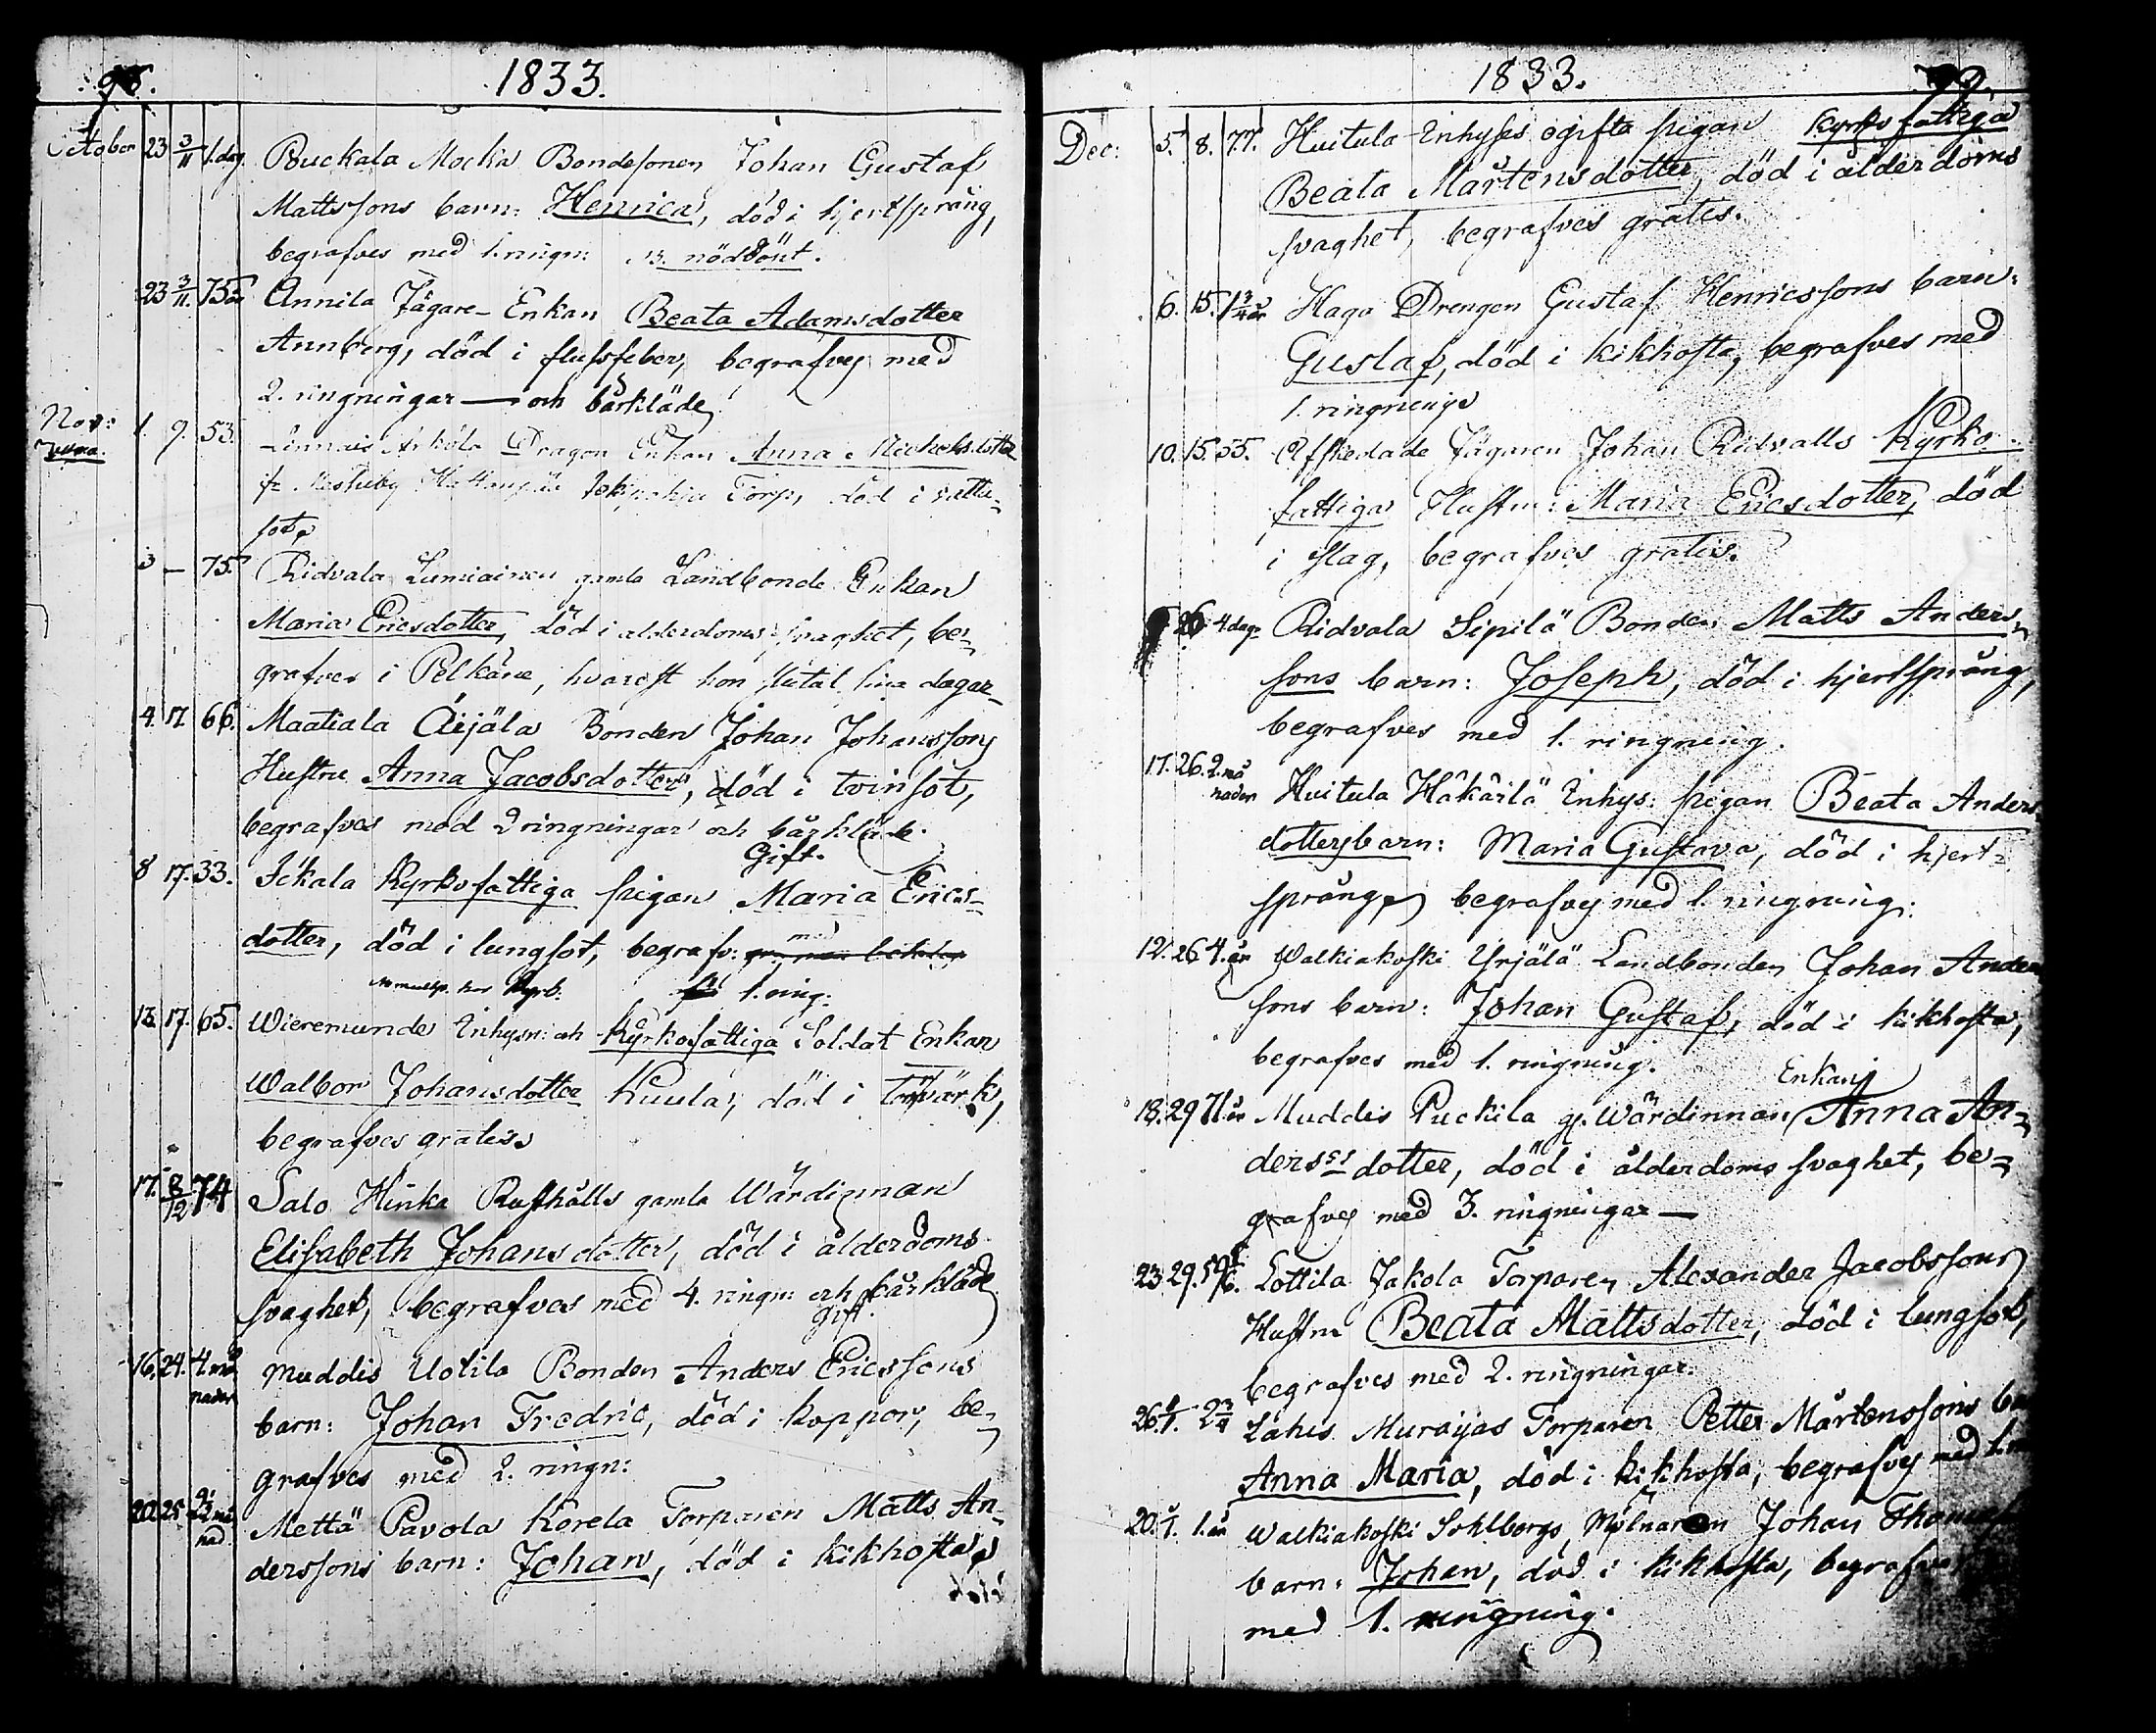 98. 1833.
October 23 3/11 1.dag Buckala Mocka Bondesonen Johan Gustaf
Mattssons barn: Henrica, död i hjertsprång,
begrafves med 1. ringn: nöddöpt.
23 3/11. 75 år Annila Jägare-Enkan Beata Adamsdotter
Annberg, död i flussfeber, begrafves med
2. ringningar — och bårkläde
Nov: 1. 9. 53. Dragon Enkan Anna Michelsdotter
Torp, död i vattu-
sot,
3 — 75. Ridvala Lumiainen gamla Landbonde Enkan
Maria Ericsdotter, död i alderdoms svaghet, be-
grafves i Pelkäne, hvarest hon slutat sina dagar
4. 17. 66. Maatiala Äijälä Bonden Johan Johanssons
Hustru Anna Jacobsdotter, död i tvinsot,
begrafves med 2 ringningar och bårkläde.
Gift.
8 17. 33. Ickala Kyrkofattiga pigan Maria Erics-
dotter, död i lungsot, begrafv: med
Kyrb: 1. ring:
13. 17. 65. Wieremunde Inhysn: och Kyrkofattiga Soldat Enkan
Walbor Johansdotter Kuula, död i torrvärk,
begrafves gratis
17. 8/12 74 Salo Hinka Rusthålls gamla Wärdinnan
Elisabeth Johansdotter, död i ålderdoms
svaghet, begrafves med 4. ringn: och bårkläde
Gift.
16. 24. 4. må
nader Muddis Uotila Bonden Anders Ericssons
barn: Johan Fredric, död i koppor, be-
grafves med 2. ringn:
20. 25. må
nad. Mettä Pavola Korela Torparen Matts An-
derssons barn: Johan, död i kikhosta,
1833. 99.
Dec: 5. 8. 77. Huitula Inhyses ogifta pigan Kyrko fattiga
Beata Mårtensdotter, död i ålderdoms
svaghet, begrafves gratis.
6. 15. 1 3/4 år Haga Drengen Gustaf Henricssons barn:
Gustaf, död i kikhosta, begrafves med
1. ringning
10. 15. 55. Afskedade Jägaren Johan Ridvalls Kyrko-
fattiga Hustru: Maria Ericsdotter, död
i slag, begrafves gratis.
26. 4 dag. Ridvala Sipilä Bonden Matts Anders-
sons barn: Joseph, död i hjertsprång,
begrafves med 1. ringning.
17. 26. 2. må
nader Huitula Hâkârlä Inhys: pigan Beata Anders
dotters barn: Maria Gustava, död i hjert-
språng, begrafves med 1. ringning.
12. 26. 4. år Walkiakoski Yrjälä Landbonden Johan Anders
sons barn: Johan Gustaf, död i kikhosta,
begrafves med 1. ringning.
Enkan
18. 29 71. år Muddis Puckila gl. Wärdinnan Anna An-
derss dotter, död i ålderdoms svaghet, be-
grafves med 3. ringningar —
23. 29. Lottila Jakola Torparen Alexander Jacobssons
Hustru Beata Mattsdotter, död i lungsot,
begrafves med 2. ringningar.
26. 2 3/4 Lahis Muraijas Torparen Petter Mårtenssons
Anna Maria, död i kikhosta, begrafves med
20. 1. år Walkiakoski Sohlbergs Mjölnaren Johan
barn: Johan, död i kikhosta, begrafves
med 1. ringning.